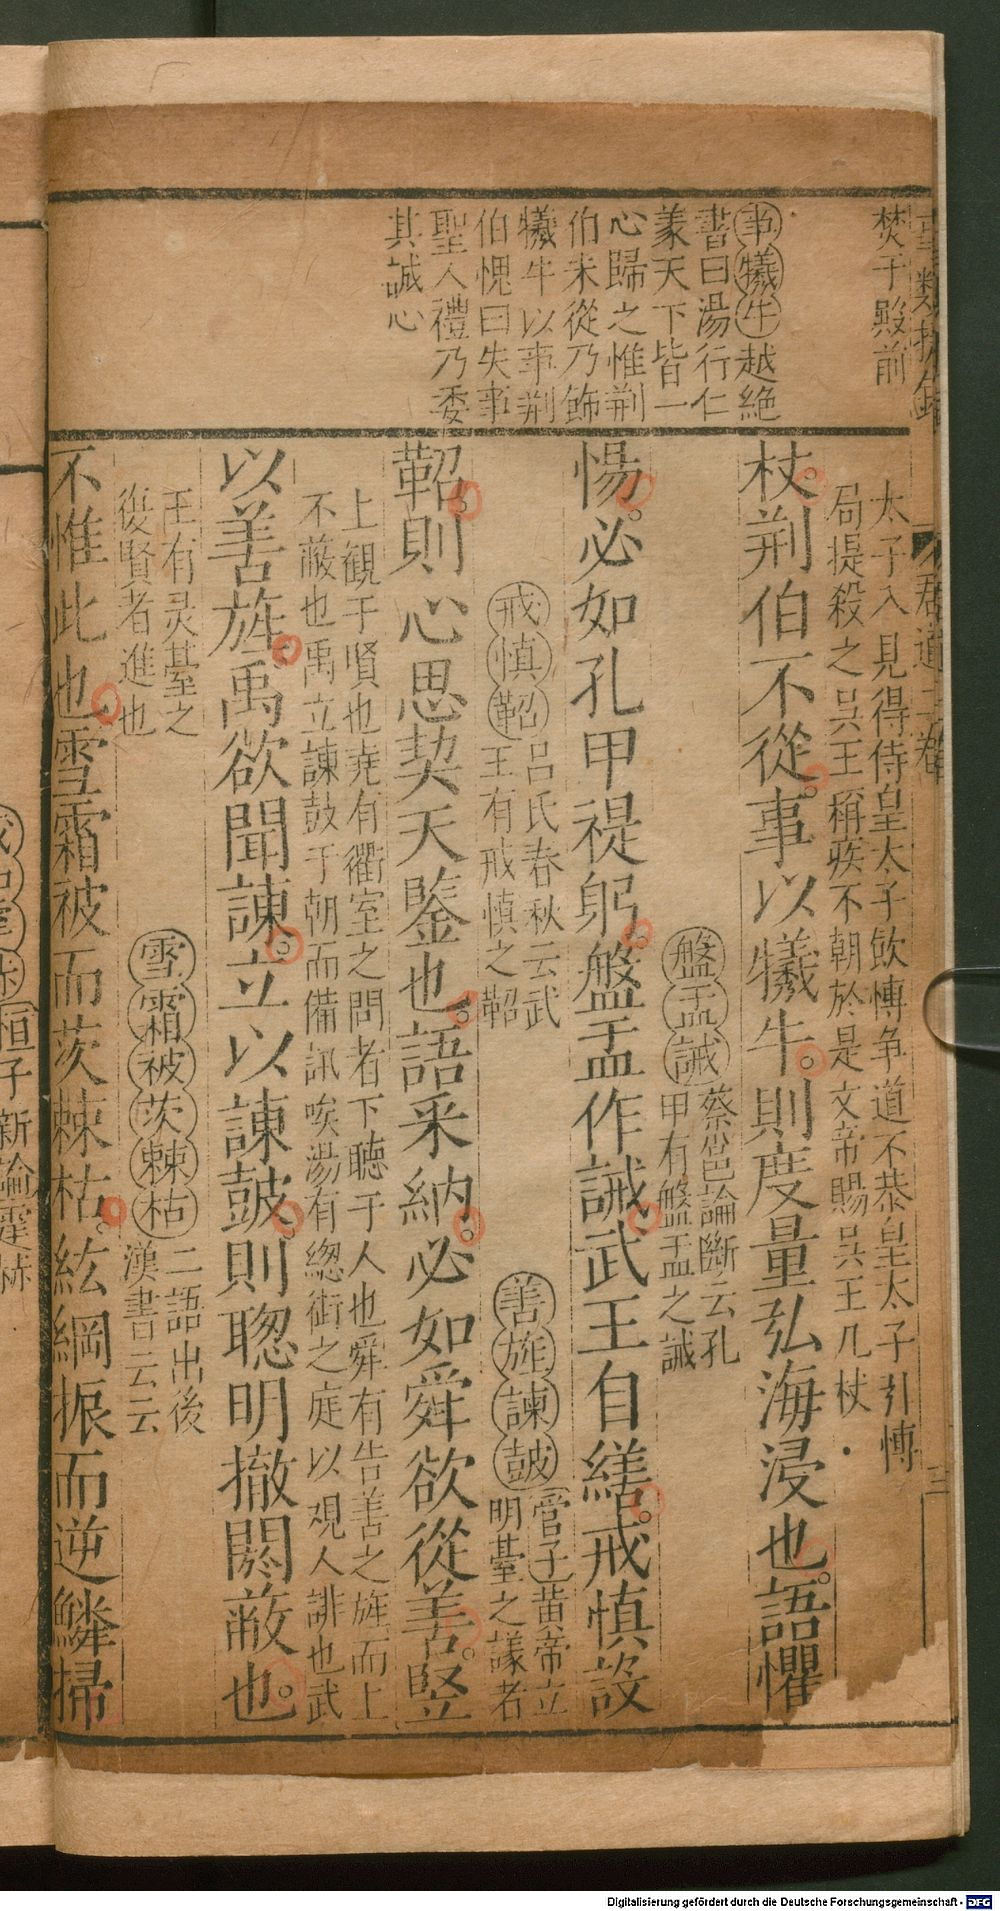 焚于殿前
事犧牛越絶
書曰湯行仁
義天下皆一
心歸之惟荆
伯未從乃飾
犧牛以事荆
伯愧曰失事
聖人禮乃委
其誠心
君道二卷
三
太子入見得侍皇太子飲愽争道不恭皇太子引愽
局提殺之吳王稱疾不朝於是文帝賜吳王几杖
杖荆伯不從事以犧牛則度量弘海浸也語懼
盤盂誡蔡邕論斷云孔
甲有盤盂之誡
惕必如孔甲禔躬盤盂作誡武王自繕戒慎設
戒慎鞀吕氏春秋云武
王有戒慎之鞀
善旌諫鼓管子黄帝立
明臺之議者
鞀則心思契天鑒也語采納必如舜欲從善竪
上觀于賢也堯有衢室之問者下聽于人也舜有告善之旌而上
不蔽也禹立諫鼓于朝而備訊唉湯有總街之庭以觀人誹也武
以善旌禹欲聞諫立以諫鼓則聰明撤閼蔽也
王有灵臺之
復賢者進也
雪霜被茨棘枯二語出後
漢書云云
不惟此也雪霜被而茨棘枯紘綱振而逆鱗掃
桓子新論霆
Digitalisierung gefördert durch die Deutsche Forschungsgemeinschaft - DFG